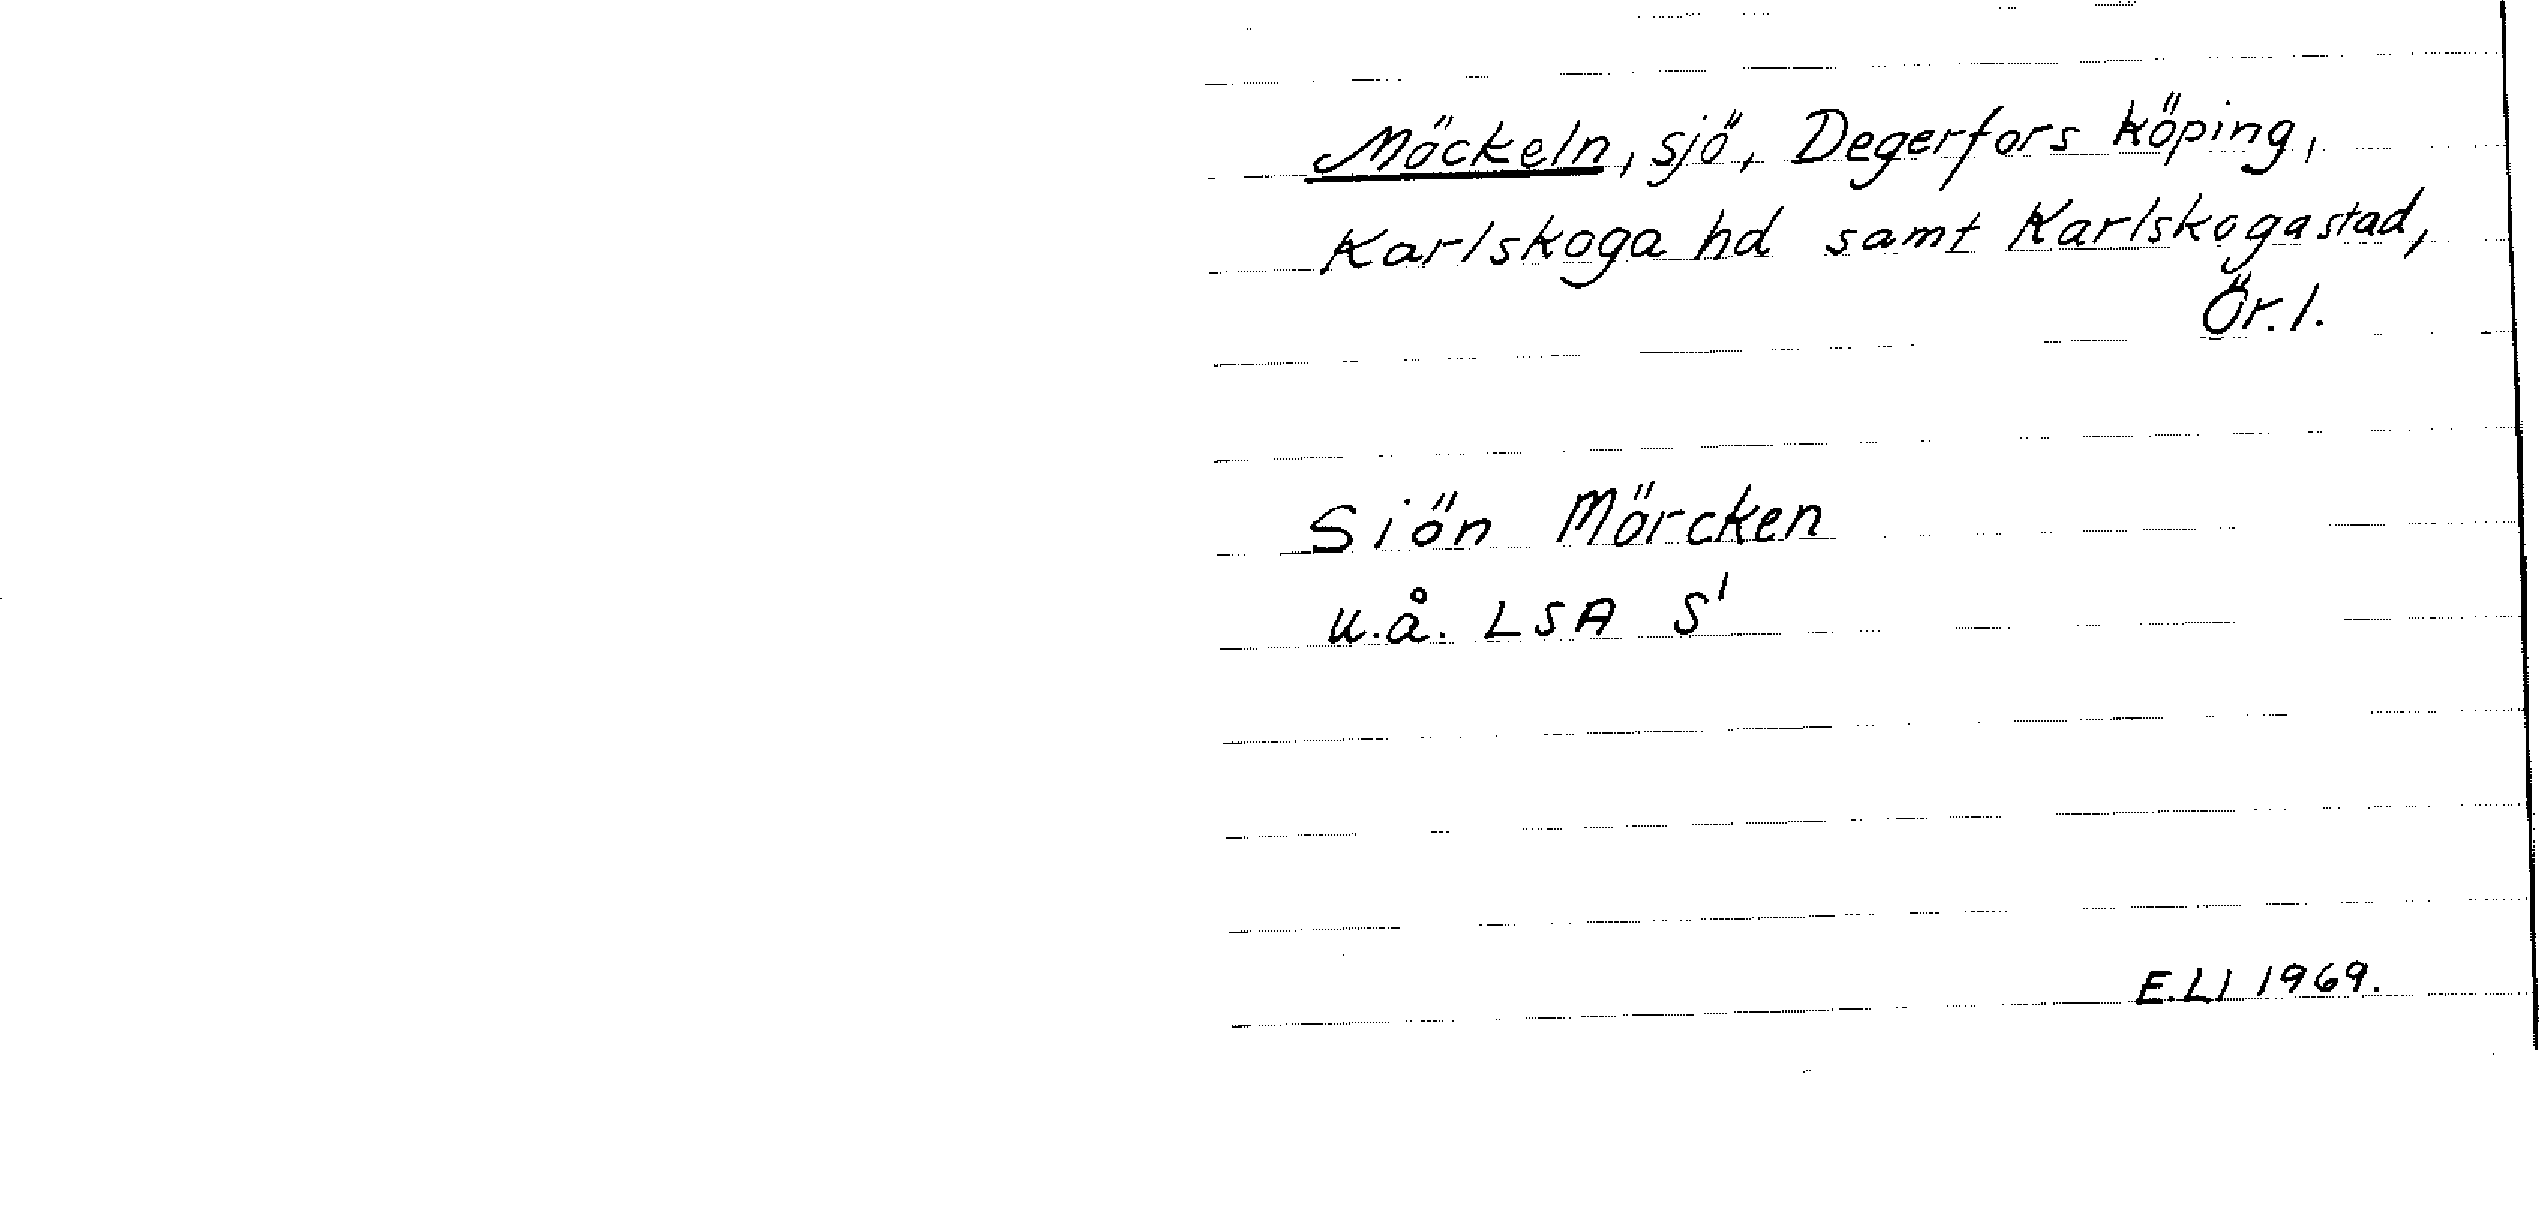 Möckeln, sjö, Degerfors köping,
Karlskoga hd samt Karlskoga stad,
Ör. l.
Siön Mörcken
u.å. LSA S¹
E.LJ 1969.